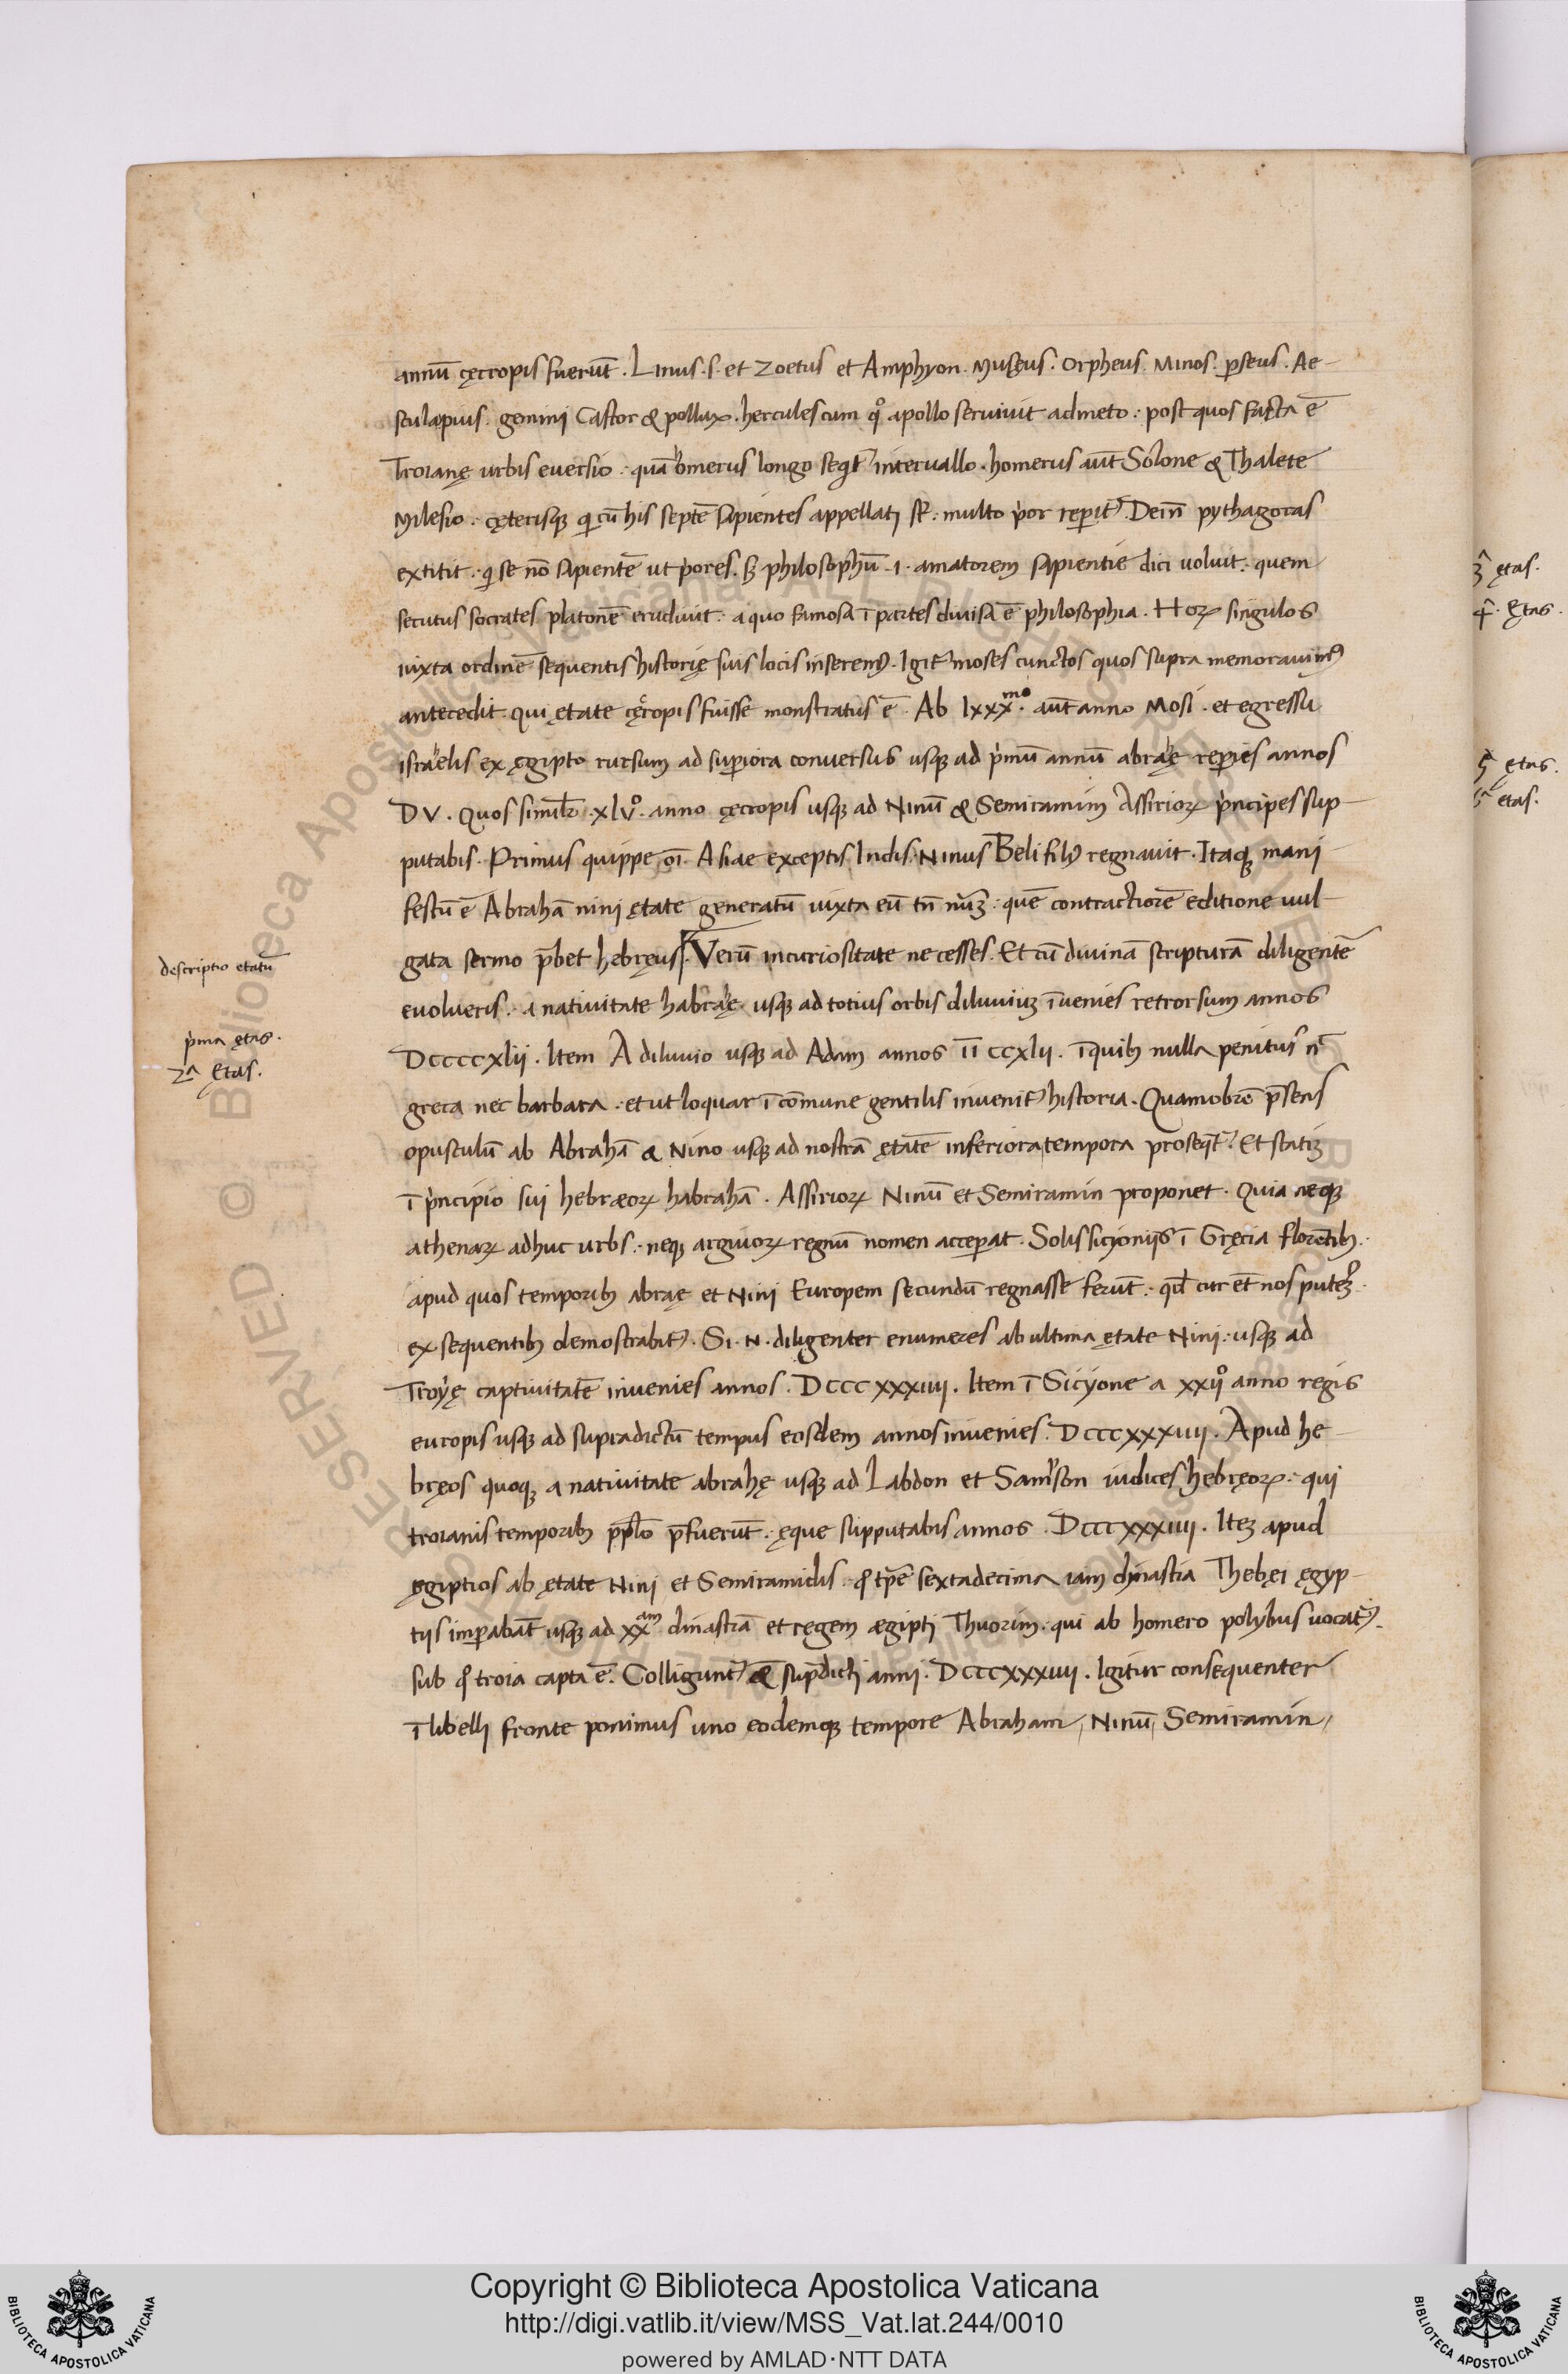 annū cęcropis fuerūt. Linus .s. et Zoetus et Amphyon. Museus. Orpheus. Minos. ꝑseus. Ae-
sculapius. gemini Castor & pollux. hercules cum q̊ apollo seruiuit admeto: post quos facta ē
Troianę urbis euersio: quā omerus longo seqt̃ interuallo. homerus aūt Solone & Thalete
Milesio: cęterisqꝫ qi cū his septē sapientes appellati st̃: multo p̍or reperit᷒. Dein̄ pythagoras
extitit: qi se nō sapientē ut p̍ores. sꝫ philosophū .i. amatorem sapientie dici uoluit: quem
secutus socrates platonē erudiuit: a quo famosa ī partes diuisa ē philosophia. Hoꝝ singulos
iuxta ordinē sequentis historię suis locis inserem᷒. Igit᷒ moses cunctos quos supra memorauim᷒
antecedit. qui ętate cęcropis fuisse monstratus ē. Ab lxxx.mo aūt anno Mosi. et egressu
israelis ex ęgipto rursum ad suꝑiora conuersus usqꝫ ad p̍mū annū abraę reꝑies annos
DV. Quos similr̃ .xlv̊. anno cęcropis usqꝫ ad Ninū & Semiramim Assirioꝝ p̍ncipes sup-
putabis. Primus quippe oī Asiae exceptis Indis. Ninus Beli fili᷒ regnauit. Itaqꝫ mani-
festū ē Abrahā nini ętate generatū iuxta eū tn̄ nūꝫ: quē contractiorē editione uul-
gata sermo p̄bet hebręus. Verū incuriositate ne cesses. Et cū diuinā scripturā diligentē
descriptio etatū
euolueris: a natiuitate habraę usqꝫ ad totius orbis diluuiuꝫ īuenies retrorsum annos
p̍ma ętas.
DCCCCxlii. Item A diluuio usqꝫ ad Adam annos II CCxlii. ī quibꝫ nulla penitus n̄
2ᵃ Etas.
greca nec barbara: et ut loquar ī comune gentilis inuenit᷒ historia. Quamobrē p̄sens
opusculū ab Abrahā & Nino usqꝫ ad nostrā ętatē inferiora tempora proseqt̃. Et statiꝫ
ī p̍ncipio sui hebræoꝝ habrahā. Assirioꝝ Ninū et Semiramin proponet. Quia neqꝫ
athenaꝝ adhuc urbs: neqꝫ argiuoꝝ regnū nomen acceꝑat. Solis sicioniis ī Gręcia florētibꝫ.
apud quos temporibꝫ abraę et Nini Europem secundū regnasse ferūt: qd̃ cur et̄ nos putēꝫ.
ex sequentibꝫ demostrabit᷒. Si .N. diligenter enumeres ab ultima ętate Nini: usqꝫ ad
Troyę captiuitatē inuenies annos. DCCCxxxiiii. Item ī Sicyone a xxii̊ anno regis
europis usqꝫ ad supradictū tempus eosdem annos inuenies. DCCCxxxiiii. Apud he-
bręos quoqꝫ a natiuitate abrahę usqꝫ ad Labdon et Samson iudices hebręoꝝ: qui
troianis temporibꝫ pp̄lo p̄fuerūt: ęque supputabis annos. DCCCxxxiiii. Iteꝫ apud
ęgiptios ab ętate Nini et Semiramidis: qo tp̄e sextadecima iam dinastia Thebęi ęgyp-
tiis imꝑabāt usqꝫ ad xx.am dinastiā et regem ægipti Thuorim: qui ab homero polybus uocat᷒.
sub qo troia capta ē. Colligunt᷒ & sup̄dicti anni. DCCCxxxiiii. Igitur consequenter
ī libelli fronte ponimus uno eodemqꝫ tempore Abraham, Ninū, Semiramin,
3ᵃ ętas.
4ᵃ. Etas.
5ᵃ ętas.
5ᵃ etas.
Copyright © Biblioteca Apostolica Vaticana
http://digi.vatlib.it/view/MSS_Vat.lat.244/0010
powered by AMLAD·NTT DATA
BIBLIOTECA APOSTOLICA VATICANA
BIBLIOTECA APOSTOLICA VATICANA